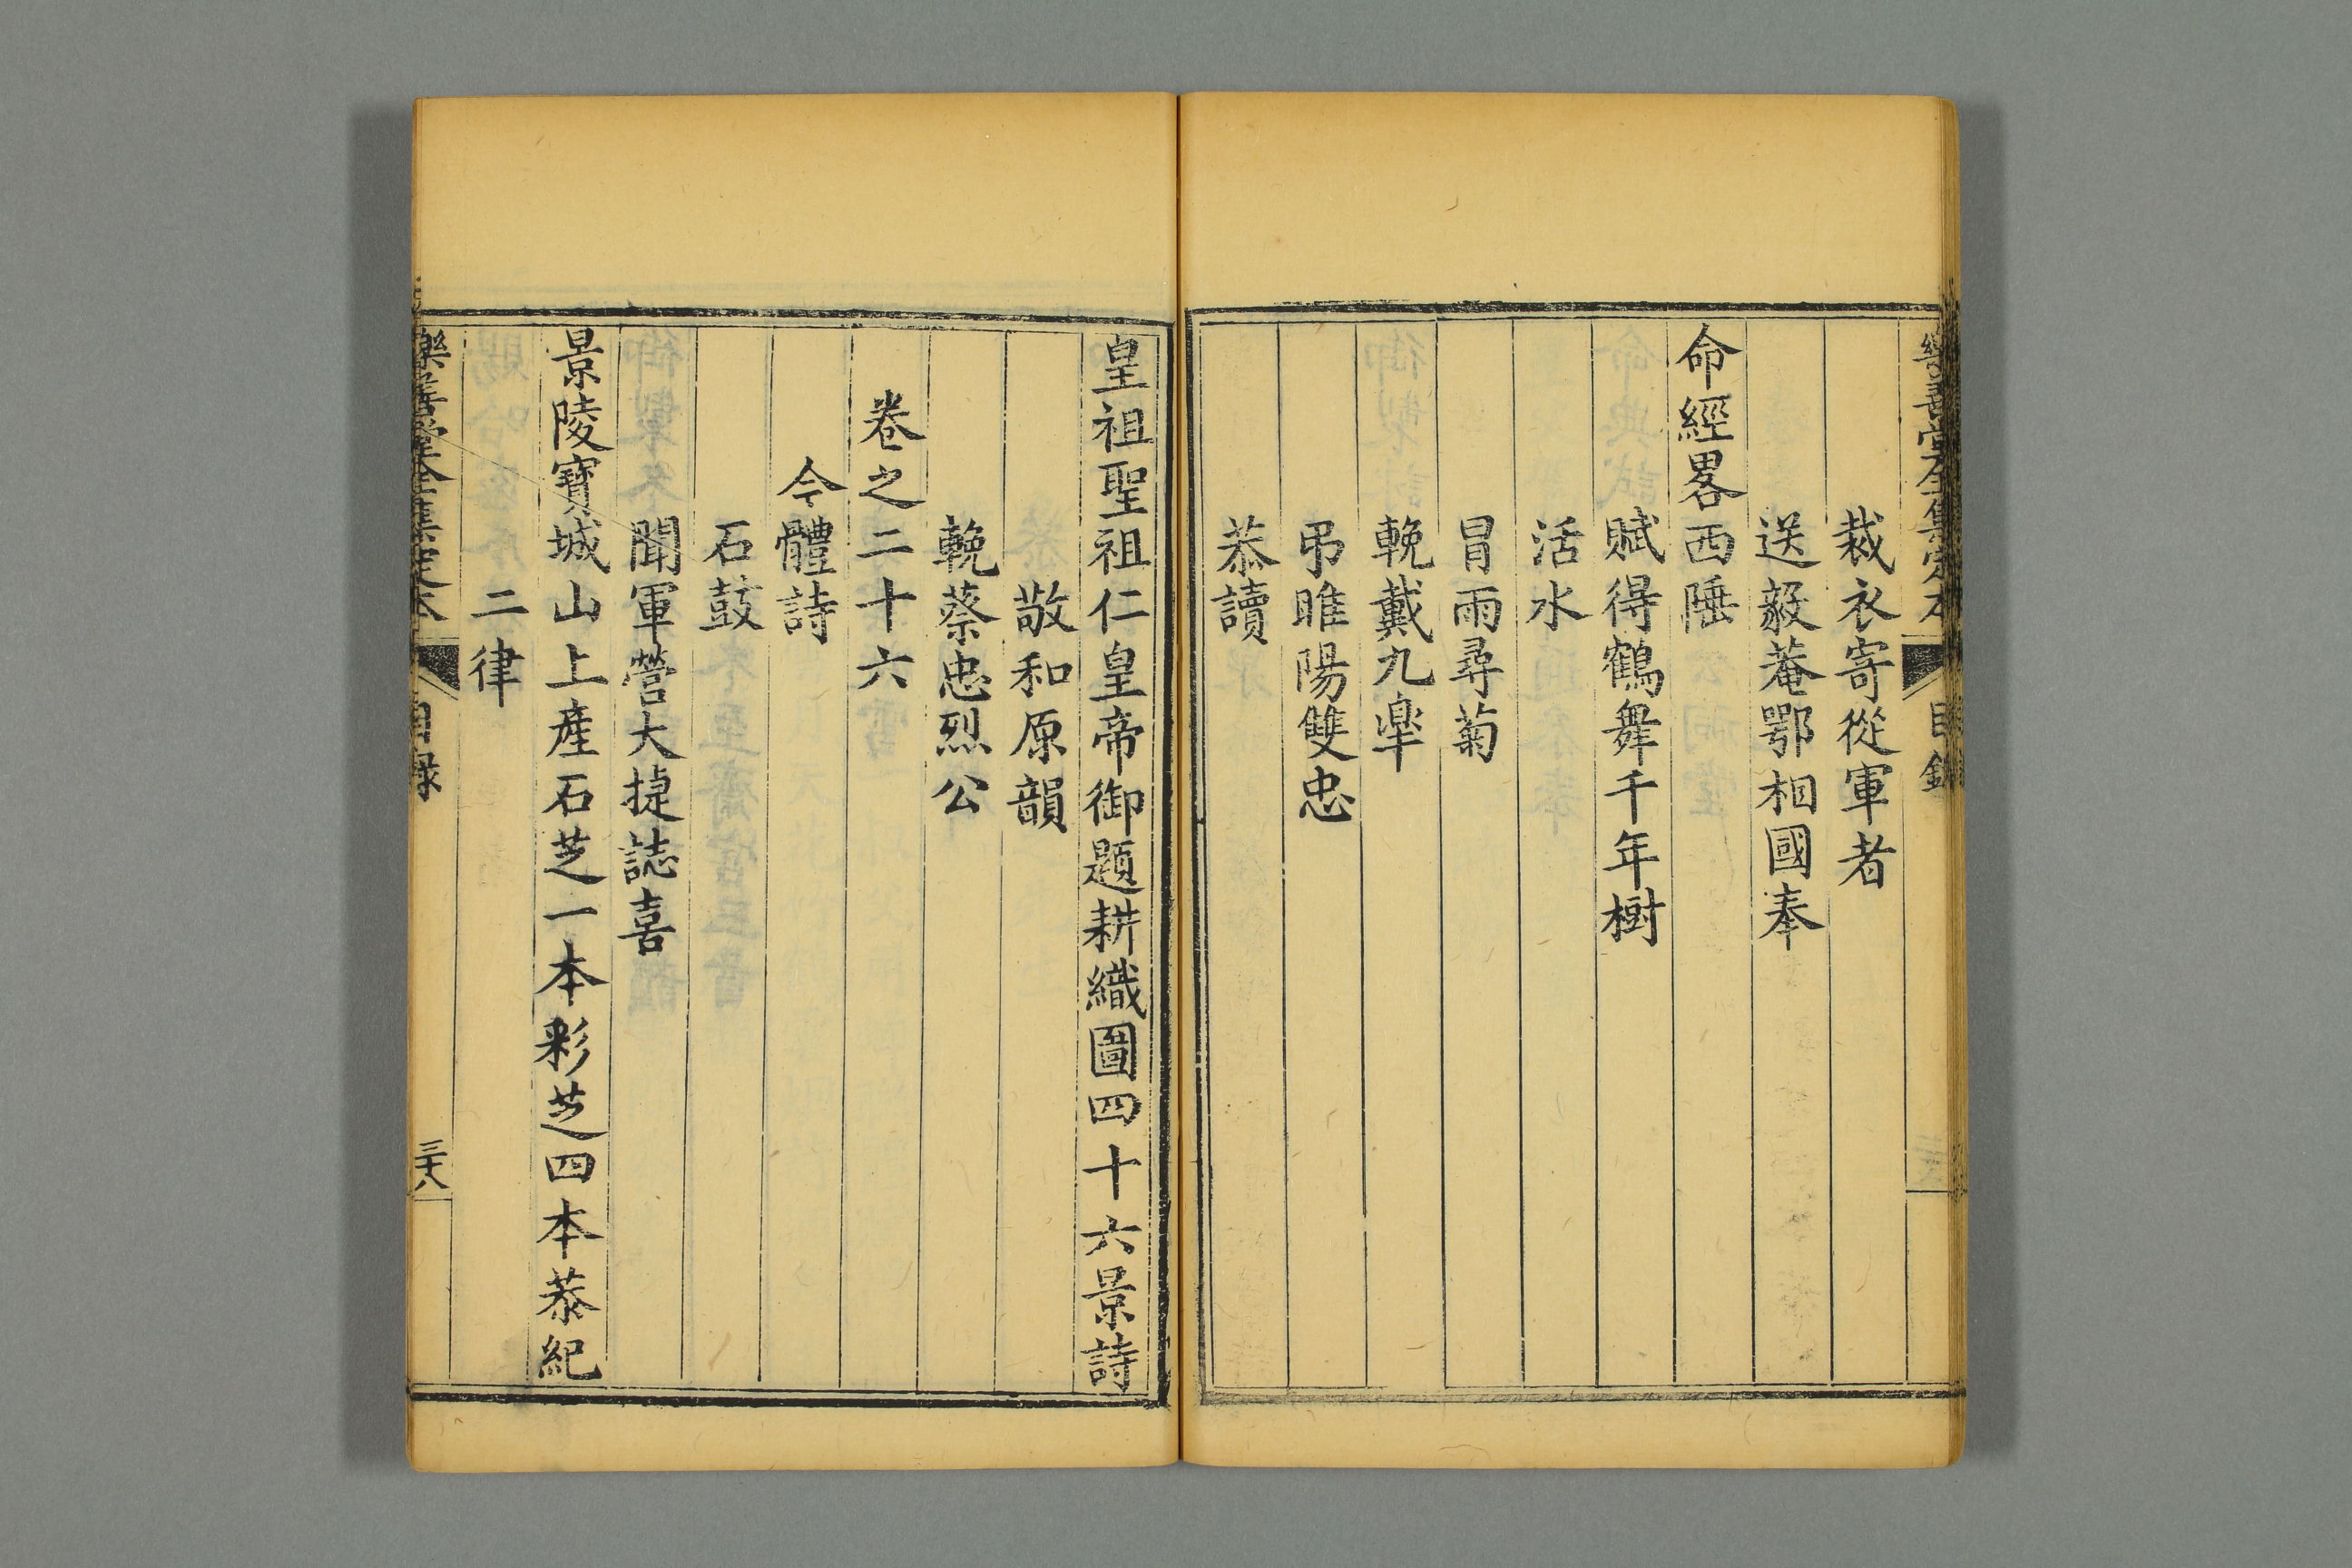 樂善堂全集定本 目錄
裁衣寄從軍者
送毅菴鄂相國奉
命經畧西陲
賦得鶴舞千年樹
活水
冒雨尋菊
輓戴九臯
弔睢陽雙忠
恭讀
皇祖聖祖仁皇帝御題耕織圖四十六景詩
敬和原韻
輓蔡忠烈公
卷之二十六
今體詩
石鼓
聞軍營大捷誌喜
景陵寶城山上產石芝一本彩芝四本恭紀
二律
樂善堂全集定本 目錄 三十八